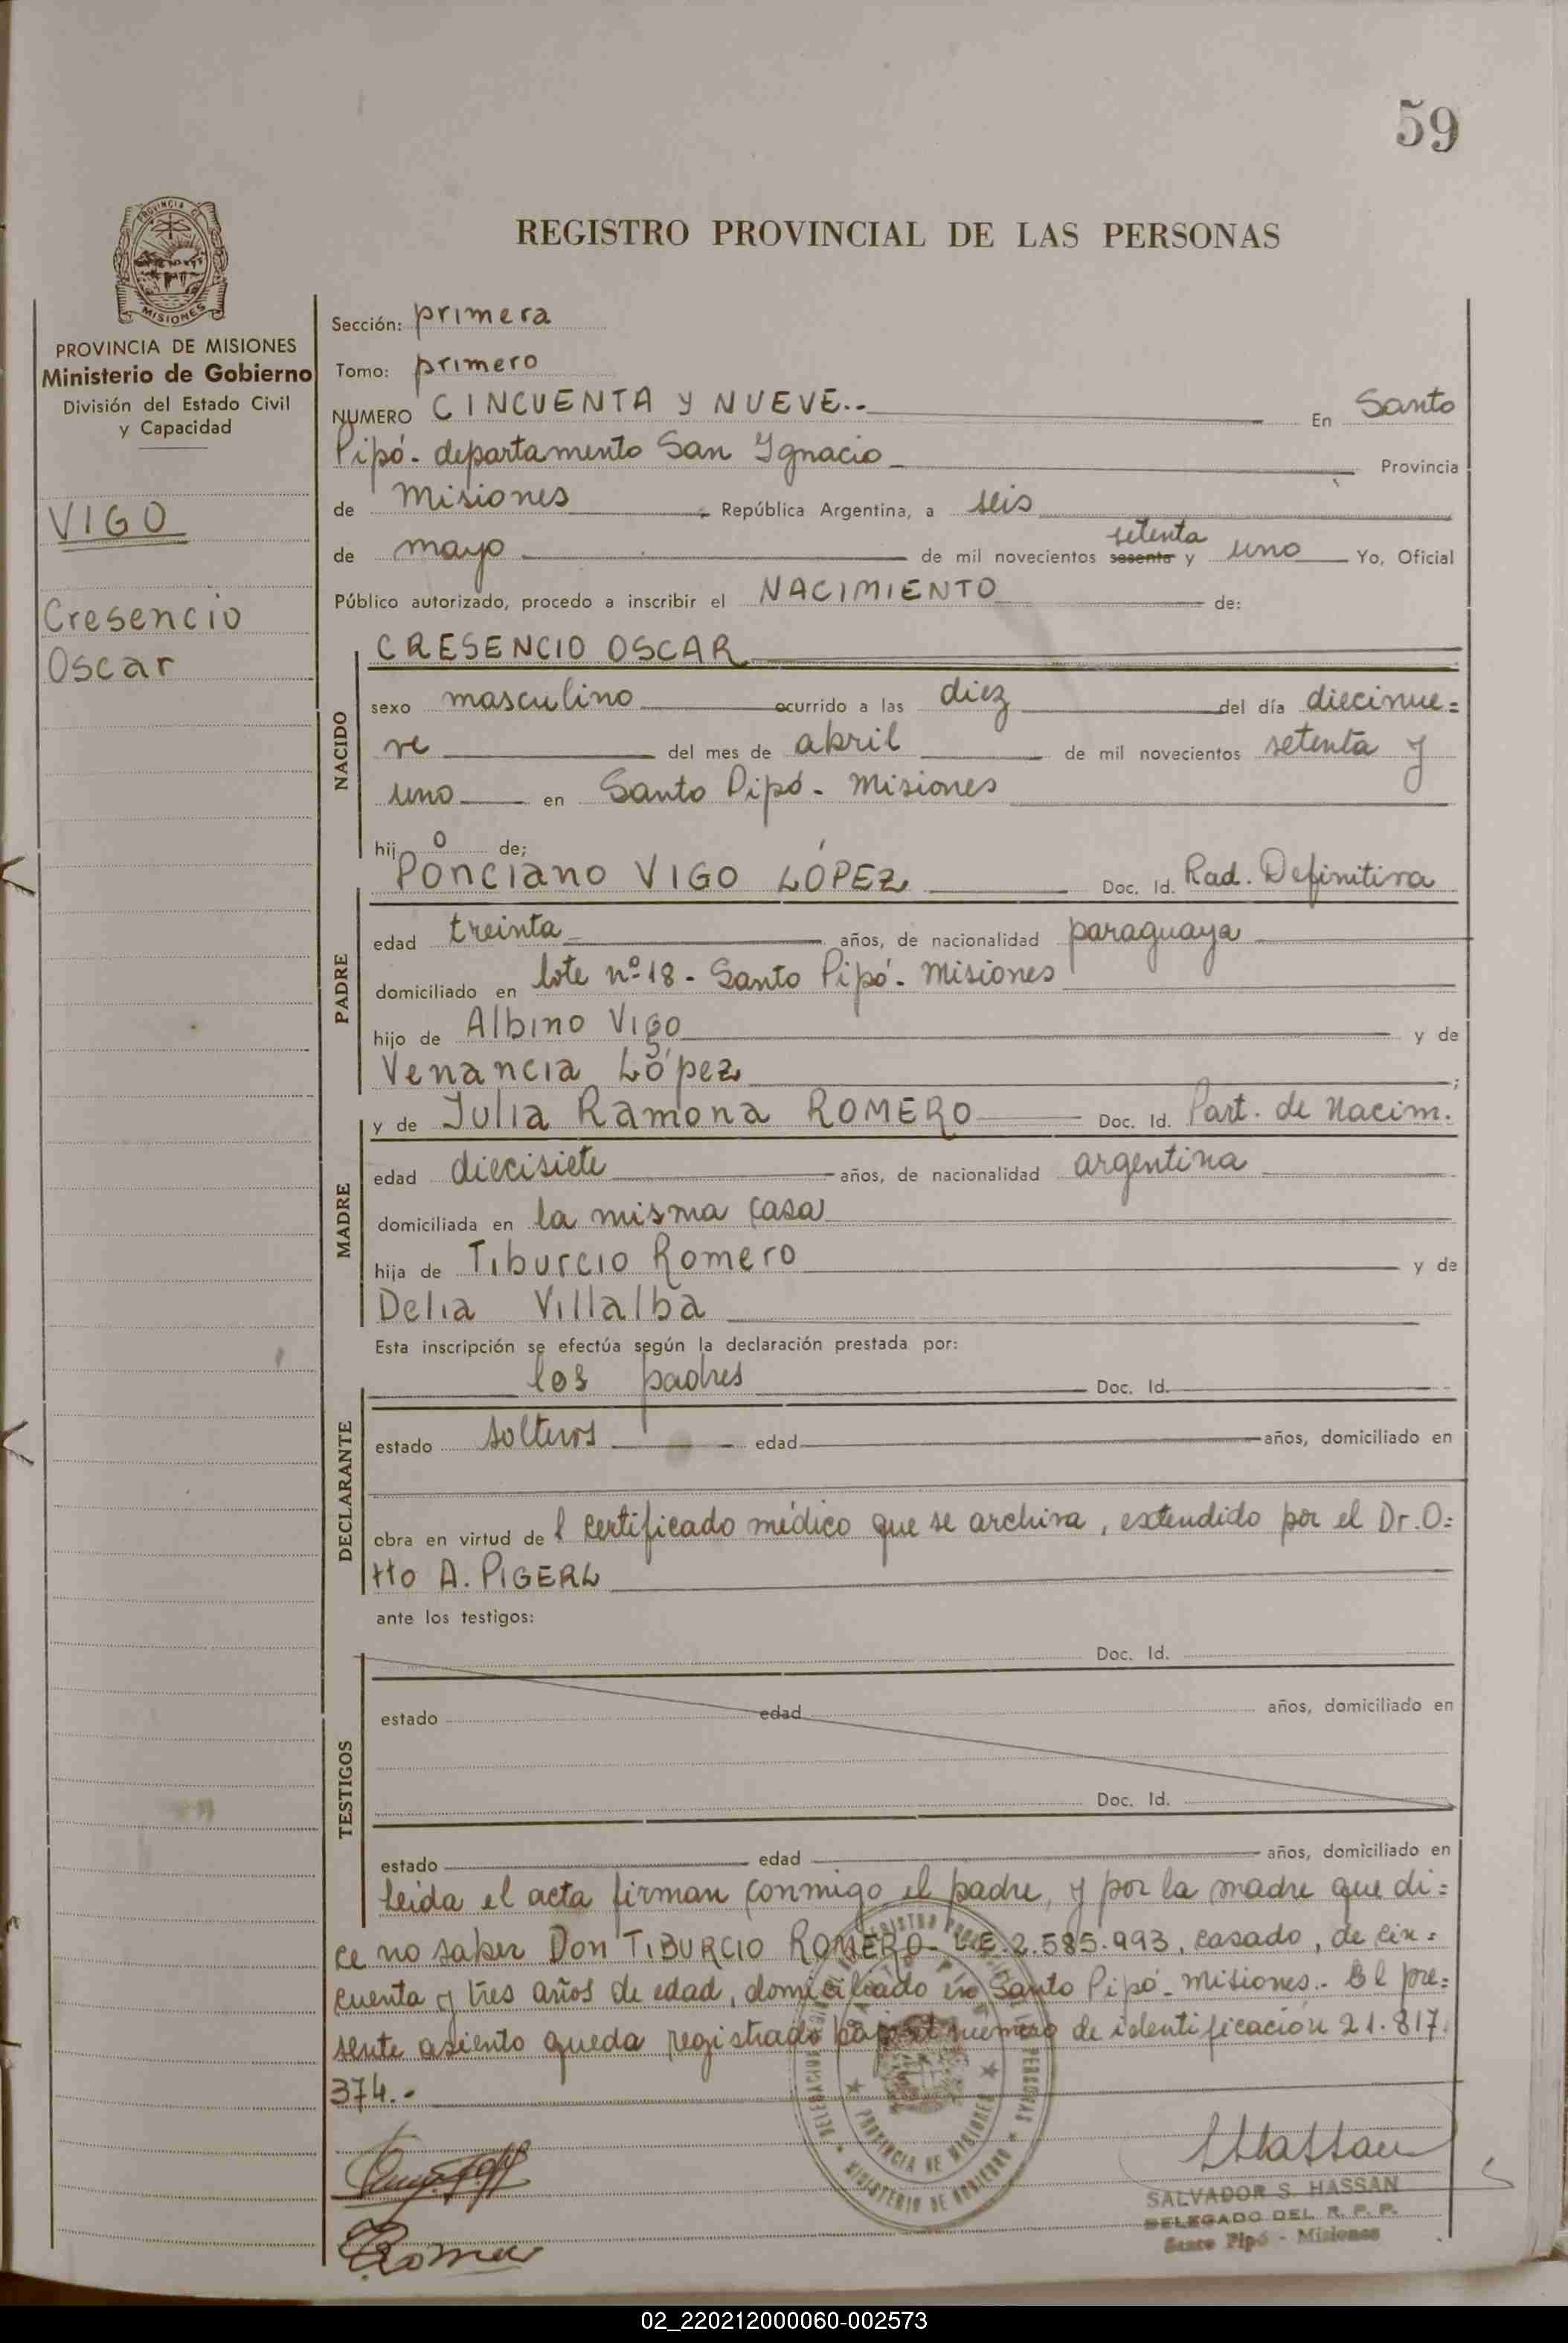 59
REGISTRO PROVINCIAL DE LAS PERSONAS
PROVINCIA DE MISIONES
Ministerio de Gobierno
División del Estado Civil
y Capacidad
VIGO
Cresencio
Oscar
Sección: primera
Tomo: primero
NUMERO CINCUENTA Y NUEVE.- En Santo
Pipó - departamento San Ignacio Provincia
de Misiones República Argentina, a seis
setenta
de mayo de mil novecientos sesenta y uno Yo, Oficial
Público autorizado, procedo a inscribir el NACIMIENTO de:
NACIDO
CRESENCIO OSCAR
sexo masculino ocurrido a las diez del día diecinue=
ve del mes de abril de mil novecientos setenta y
uno en Santo Pipó - Misiones
hijo de;
PADRE
Ponciano VIGO LÓPEZ Doc. Id. Rad. Definitiva
edad treinta años, de nacionalidad paraguaya
domiciliado en lote nº 18 - Santo Pipó - Misiones
hijo de Albino Vigo y de
Venancia López;
MADRE
y de Julia Ramona ROMERO Doc. Id. Part. de Nacim.
edad diecisiete años, de nacionalidad argentina
domiciliada en la misma casa
hija de Tiburcio Romero y de
Delia Villalba
Esta inscripción se efectúa según la declaración prestada por:
DECLARANTE
los padres Doc. Id.
estado solteros edad años, domiciliado en
obra en virtud del certificado médico que se archiva, extendido por el Dr. O=
tto A. PIGERL
ante los testigos:
TESTIGOS
Doc. Id.
estado edad años, domiciliado en
Doc. Id.
estado edad años, domiciliado en
Leída el acta firman conmigo el padre, y por la madre que di=
ce no saber Don TIBURCIO ROMERO - L.E. 2.585.993, casado, de cin=
cuenta y tres años de edad, domiciliado en Santo Pipó - Misiones.- El pre=
sente asiento queda registrado bajo el número de identificación 21.817.
374.-
PROVINCIA DE MISIONES
MINISTERIO DE GOBIERNO
SALVADOR S. HASSAN
DELEGADO DEL R. P. P.
Santo Pipó - Misiones
02_220212000060-002573